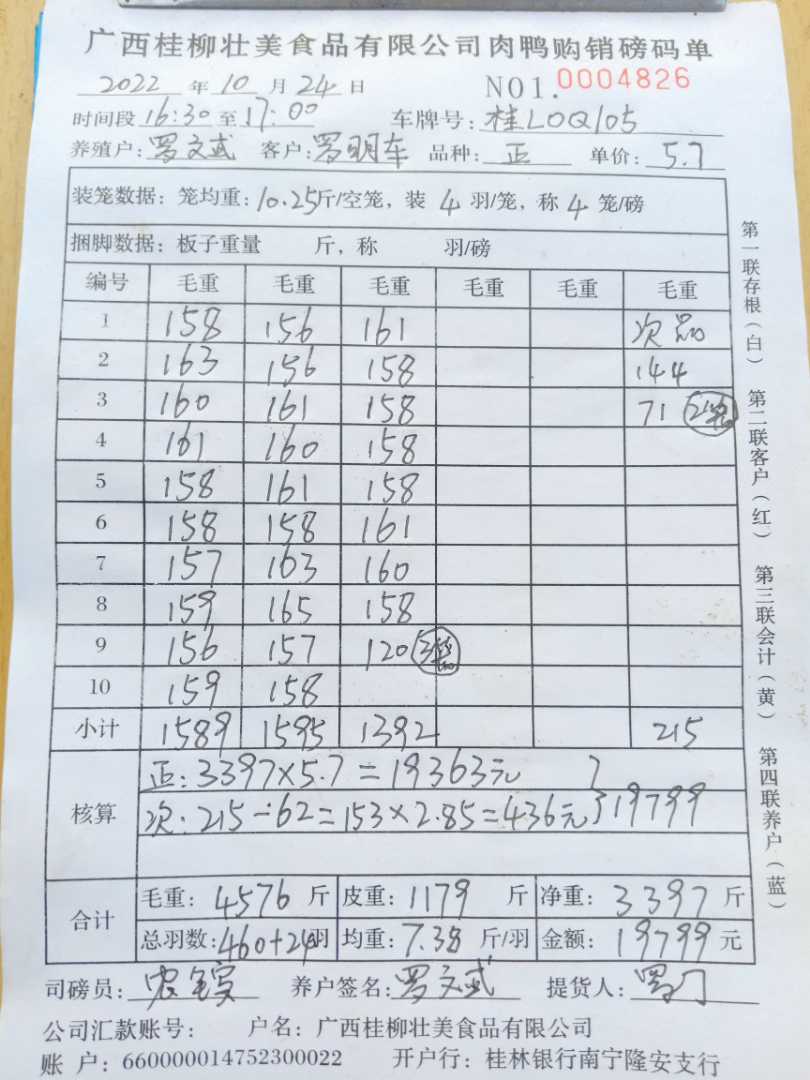 广西桂柳壮美食品有限公司肉鸭购销磅码单
2022 年 10 月 24 日 NO1. 0004826
时间段 16:30 至 17:00 车牌号: 桂LOQ105
养殖户: 罗文武 客户: 罗明车 品种: 正 单价: 5.7
装笼数据: 笼均重: 10.25斤/空笼, 装 4 羽/笼, 称 4 笼/磅
捆脚数据: 板子重量 斤, 称 羽/磅
编号 毛重 毛重 毛重 毛重 毛重 毛重
1 158 156 161 次品
2 163 156 158 144
3 160 161 158 71
4 161 160 158
5 158 161 158
6 158 158 161
7 157 163 160
8 159 165 158
9 156 157 120
10 159 158
小计 1589 1595 1392 215
核算
正: 3397×5.7=19363元
次: 215-62=153×2.85=436元 } 19799
合计
毛重: 4576 斤 皮重: 1179 斤 净重: 3397 斤
总羽数: 460+24羽 均重: 7.38 斤/羽 金额: 19799 元
司磅员: 养户签名: 罗文武 提货人:
公司汇款账号: 户名: 广西桂柳壮美食品有限公司
账 户: 660000014752300022 开户行: 桂林银行南宁隆安支行
第一联存根(白)
第二联客户(红)
第三联会计(黄)
第四联养户(蓝)